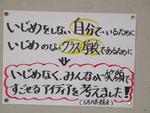 いじめをしない自分でいるために
いじめのないクラス・学校であるために
いじめなく、みんなが笑顔で
すごせるアイデアを考えました!